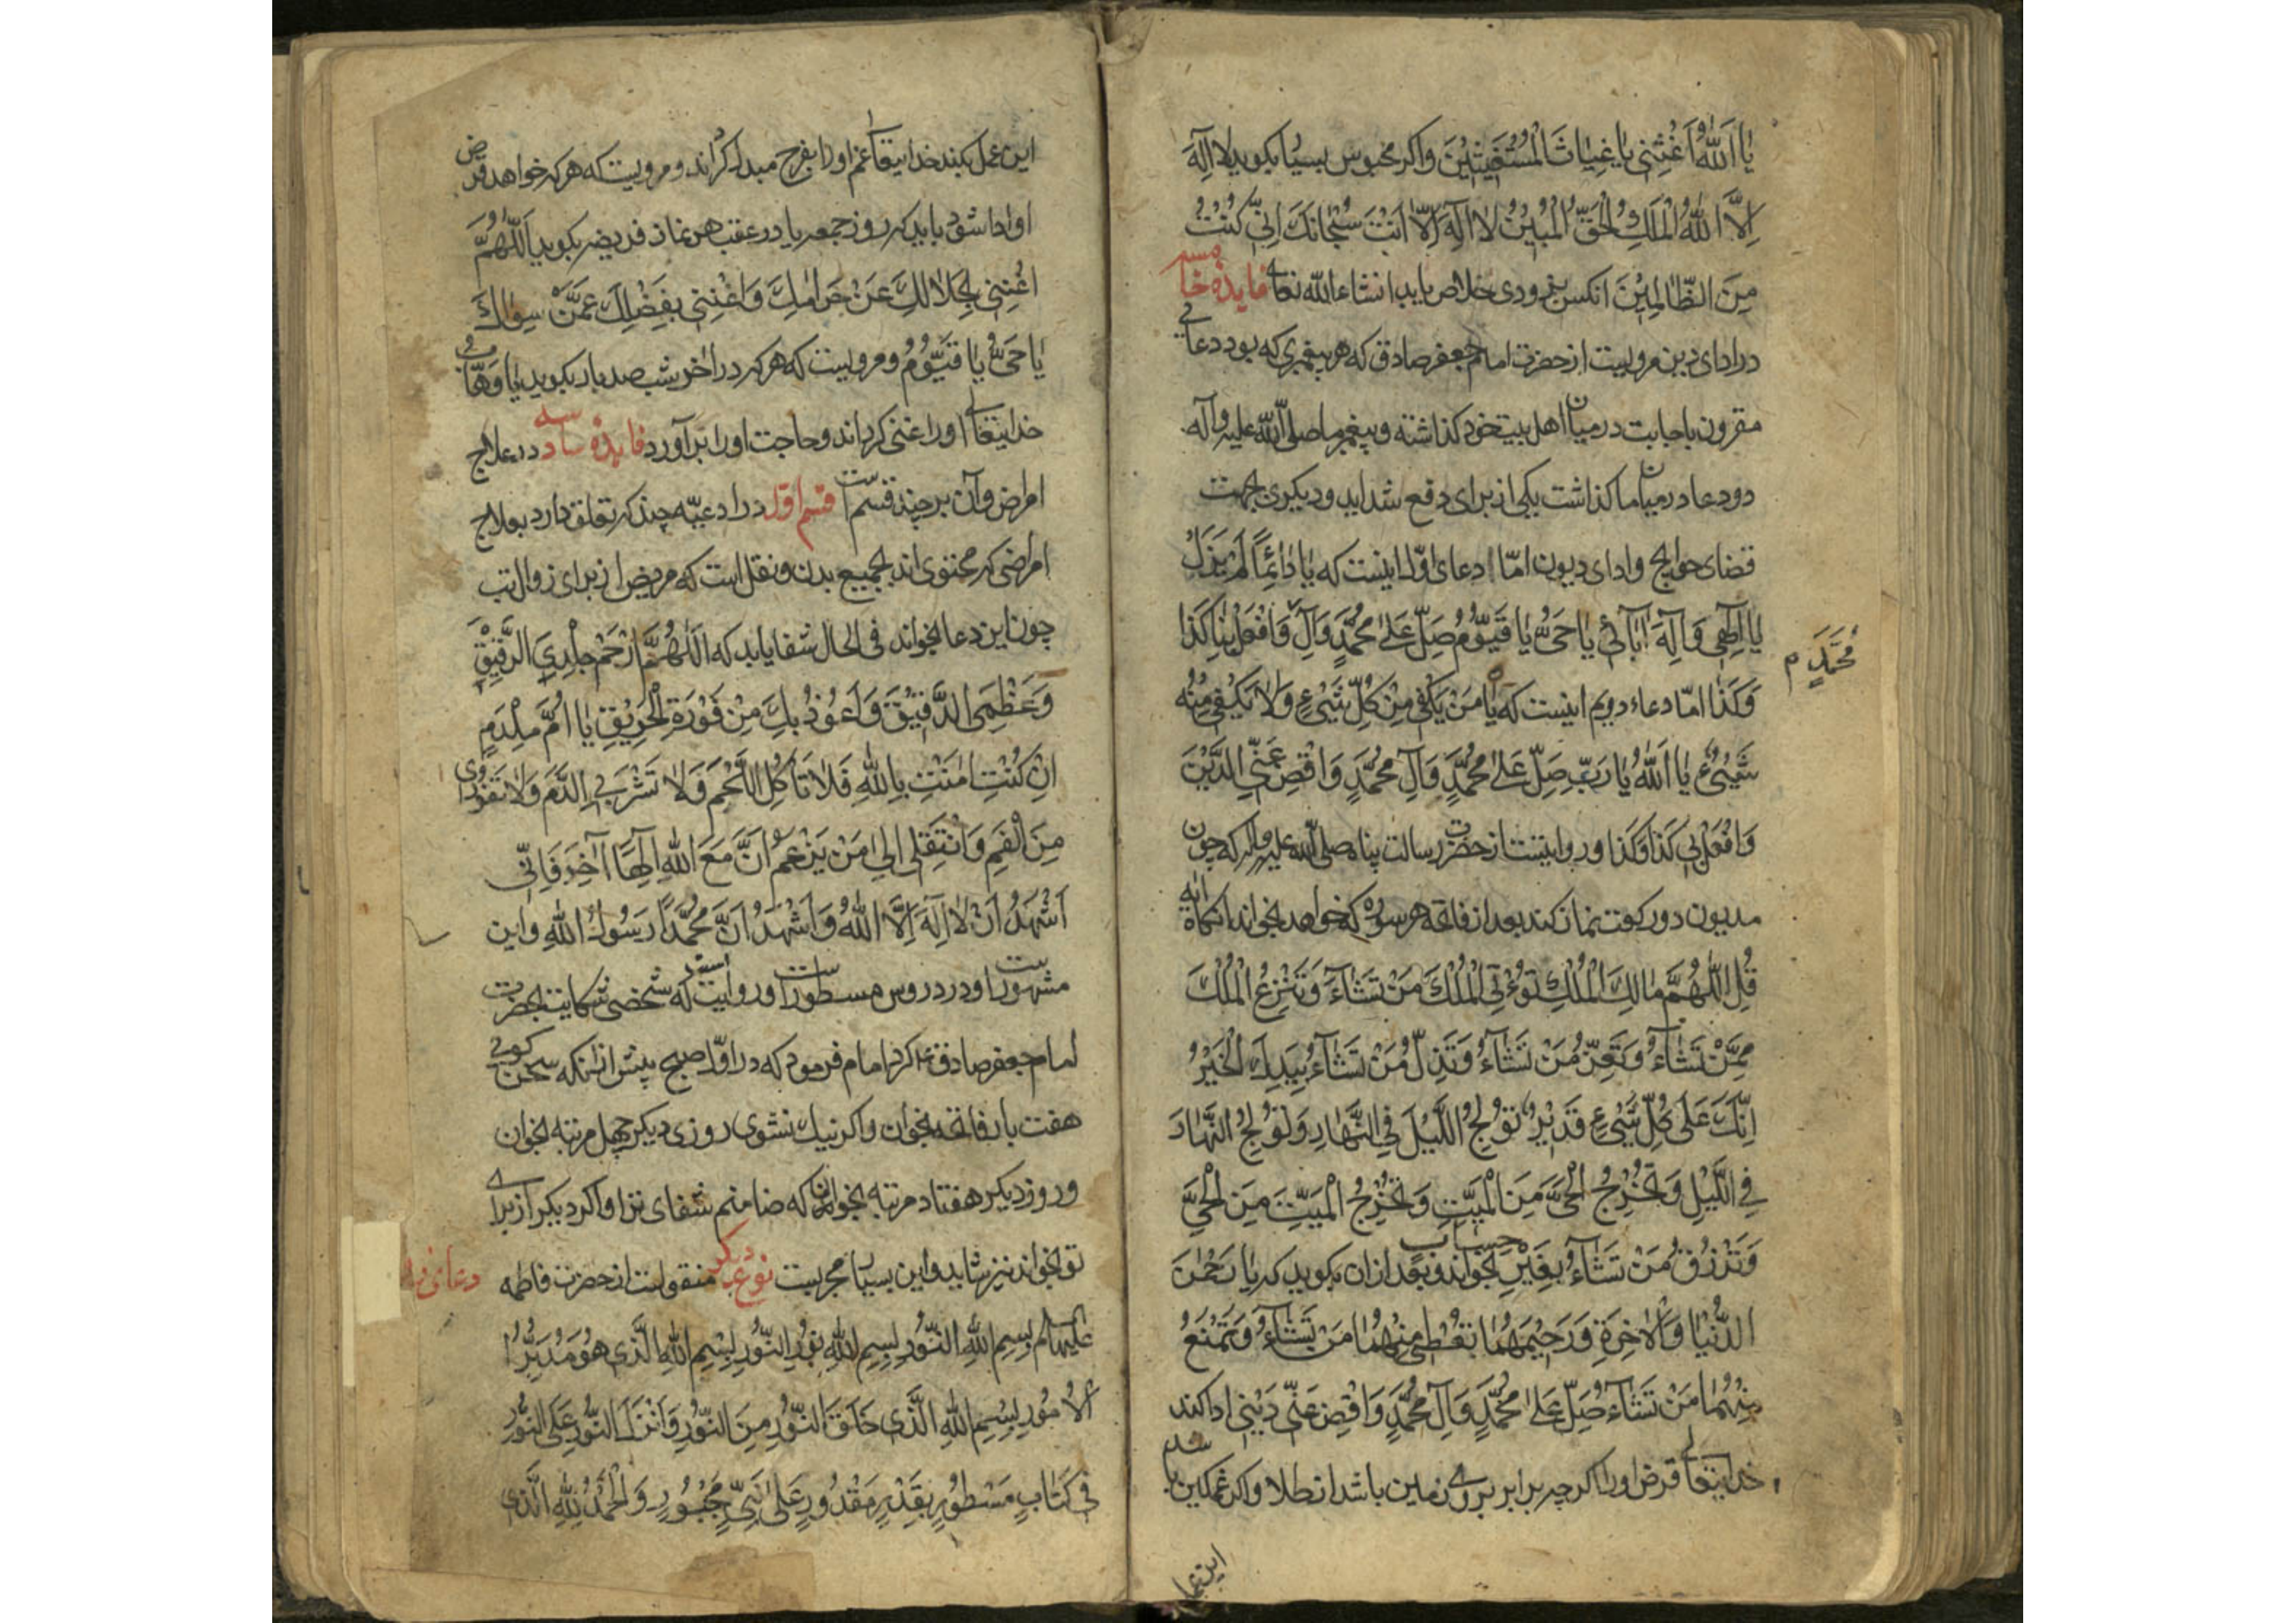 يَا اَللّٰهُ اَغِثْنِي يَا غِيَاثَ الْمُسْتَغِيثِيْنَ واكر محبوس بسيار بكويد لا اِلٰهَ
اِلَّا اللّٰهُ الْمَلِكُ الْحَقُّ الْمُبِيْنُ لَا اِلٰهَ اِلَّا اَنْتَ سُبْحَانَكَ اِنِّي كُنْتُ
مِنَ الظَّالِمِيْنَ انكس بزودى خلاص يابد انشاءالله تعالى فايدهٔ خامسه
در اداى دين مرويست از حضرت امام جعفر صادق كه هر پيغمبرى كه بود دعائى
مقرون باجابت در ميان اهل بيت خود كذاشته وپيغمبر ما صلى الله عليه وآله
دو دعا در ميان ما كذاشت يكى از براى دفع شدايد وديكرى جهت
قضاى حوايج واداى ديون امّا دعاى اوّل اينست كه يَا دَائِمًا لَمْ يَزَلْ
يَا اِلٰهِي وَاِلٰهَ اٰبَائِي يَا حَيُّ يَا قَيُّوْمُ صَلِّ عَلىٰ مُحَمَّدٍ وَآلِ وَافْعَلْ بِنَا كَذَا
مُحَمَّدٍ م
وَكَذَا امّا دعاء دويم اينست كه يَا مَنْ يَكْفِي مِنْ كُلِّ شَيْءٍ وَلَا يَكْفِي مِنْهُ
شَيْءٌ يَا اَللّٰهُ يَا رَبِّ صَلِّ عَلىٰ مُحَمَّدٍ وَآلِ مُحَمَّدٍ وَاقْضِ عَنِّي الدَّيْنَ
وَافْعَلْ بِي كَذَا وَكَذَا وروايتست از حضرت رسالت پناه صلى الله عليه وآله كه چون
مديون دو ركعت نماز كند بعد از فاتحه هر سوره كه خواهد بخواند انكاه ايه
قُلِ اللّٰهُمَّ مَالِكَ الْمُلْكِ تُؤْتِي الْمُلْكَ مَنْ تَشَآءُ وَتَنْزِعُ الْمُلْكَ
مِمَّنْ تَشَآءُ وَتُعِزُّ مَنْ تَشَآءُ وَتُذِلُّ مَنْ تَشَآءُ بِيَدِكَ الْخَيْرُ
اِنَّكَ عَلىٰ كُلِّ شَيْءٍ قَدِيْرٌ تُوْلِجُ اللَّيْلَ فِي النَّهَارِ وَتُوْلِجُ النَّهَارَ
فِي اللَّيْلِ وَتُخْرِجُ الْحَيَّ مِنَ الْمَيِّتِ وَتُخْرِجُ الْمَيِّتَ مِنَ الْحَيِّ
وَتَرْزُقُ مَنْ تَشَآءُ بِغَيْرِ حِسَابٍ بخواند وبعد ازان بكويد كه يَا رَحْمٰنَ
الدُّنْيَا وَالْاٰخِرَةِ وَرَحِيْمَهُمَا تُعْطِي مِنْهُمَا مَنْ تَشَآءُ وَتَمْنَعُ
مِنْهُمَا مَنْ تَشَآءُ صَلِّ عَلىٰ مُحَمَّدٍ وَآلِ مُحَمَّدٍ وَاقْضِ عَنِّي دَيْنِي ادا كند
خدايتعالى قرض او را اكر چه برابر بروى زمين باشد از طلا واكر غمكين باشد
اين عمل
اين عمل بكند خدايتعالى غم او را بفرح مبدل كرداند ومرويست كه هر كه خواهد قرض
او ادا شود بايد كه روز جمعه يا در عقب هر نماز فريضه بكويد اَللّٰهُمَّ
اَغْنِنِي بِحَلَالِكَ عَنْ حَرَامِكَ وَاَغْنِنِي بِفَضْلِكَ عَمَّنْ سِوَاكَ
يَا حَيُّ يَا قَيُّوْمُ ومرويست كه هر كه در اخر شب صد بار بكويد يَا وَهَّابُ
خدايتعالى او را غنى كرداند وحاجت او را برآورد فايدهٔ سادسه در علاج
امراض وآن بر چند قسمست قسم اوّل در ادعيّه چند كه تعلق دارد بعلاج
امراضى كه محتوى اند بجميع بدن ونقل است كه مريض از براى زوال تب
چون اين دعا بخواند فى الحال شفا يابد كه اَللّٰهُمَّ ارْحَمْ جِلْدِيَ الرَّقِيْقَ
وَعَظْمِيَ الدَّقِيْقَ وَاَعُوْذُ بِكَ مِنْ فَوْرَةِ الْحَرِيْقِ يَا اُمَّ مِلْدَمٍ
اِنْ كُنْتِ اٰمَنْتِ بِاللّٰهِ فَلَا تَأْكُلِ اللَّحْمَ وَلَا تَشْرَبِي الدَّمَ وَلَا تَفُوْرِي
مِنَ الْفَمِ وَانْتَقِلِي اِلىٰ مَنْ يَزْعُمُ اَنَّ مَعَ اللّٰهِ اِلٰهًا آخَرَ فَاِنِّي
اَشْهَدُ اَنْ لَا اِلٰهَ اِلَّا اللّٰهُ وَاَشْهَدُ اَنَّ مُحَمَّدًا رَسُوْلُ اللّٰهِ واين
مشهورست ودر دروس مسطورست وروايت است كه شخصى شكايت بحضرت
امام جعفر صادق ع كرد امام فرمود كه در اوّل صبح پيش ازانكه سخن كوئى
هفت بار فاتحه بخوان واكر نيك نشوى روزى ديكر چهل مرتبه بخوان
وروز ديكر هفتاد مرتبه بخوان كه ضامنم شفاى ترا واكر ديكر از براى
تو بخواند نيز شايد واين بسيار مجربست نوع ديكر منقولست از حضرت فاطمه
عليها السلام بِسْمِ اللّٰهِ النُّوْرِ بِسْمِ اللّٰهِ نُوْرِ النُّوْرِ بِسْمِ اللّٰهِ الَّذِي هُوَ مُدَبِّرُ
الْاُمُوْرِ بِسْمِ اللّٰهِ الَّذِي خَلَقَ النُّوْرَ مِنَ النُّوْرِ وَاَنْزَلَ النُّوْرَ عَلَى النُّوْرِ
فِي كِتَابٍ مَسْطُوْرٍ بِقَدَرٍ مَقْدُوْرٍ عَلىٰ نَبِيٍّ مَحْبُوْرٍ وَالْحَمْدُ لِلّٰهِ الَّذِي